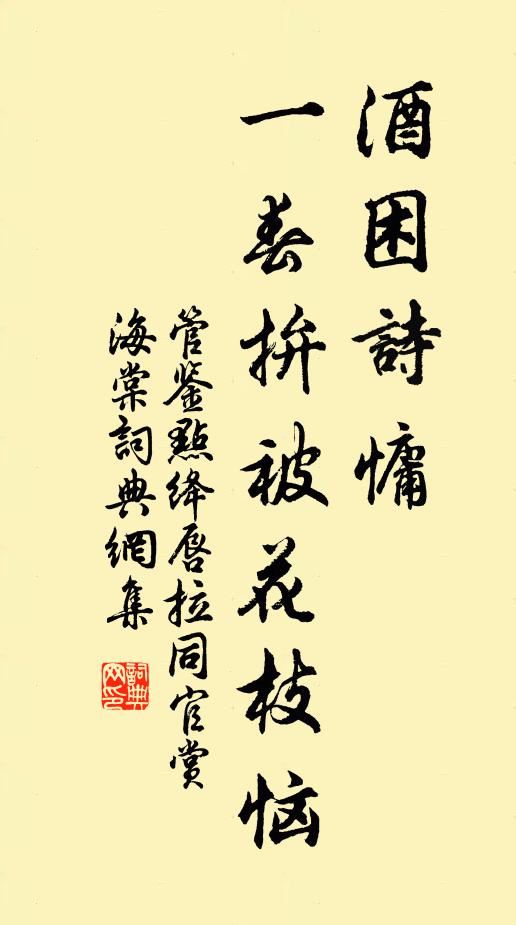 酒困詩慵
一春拚被花枝恼
管鉴點绛唇拉同官赏
海棠詞典網集
詞典
网印